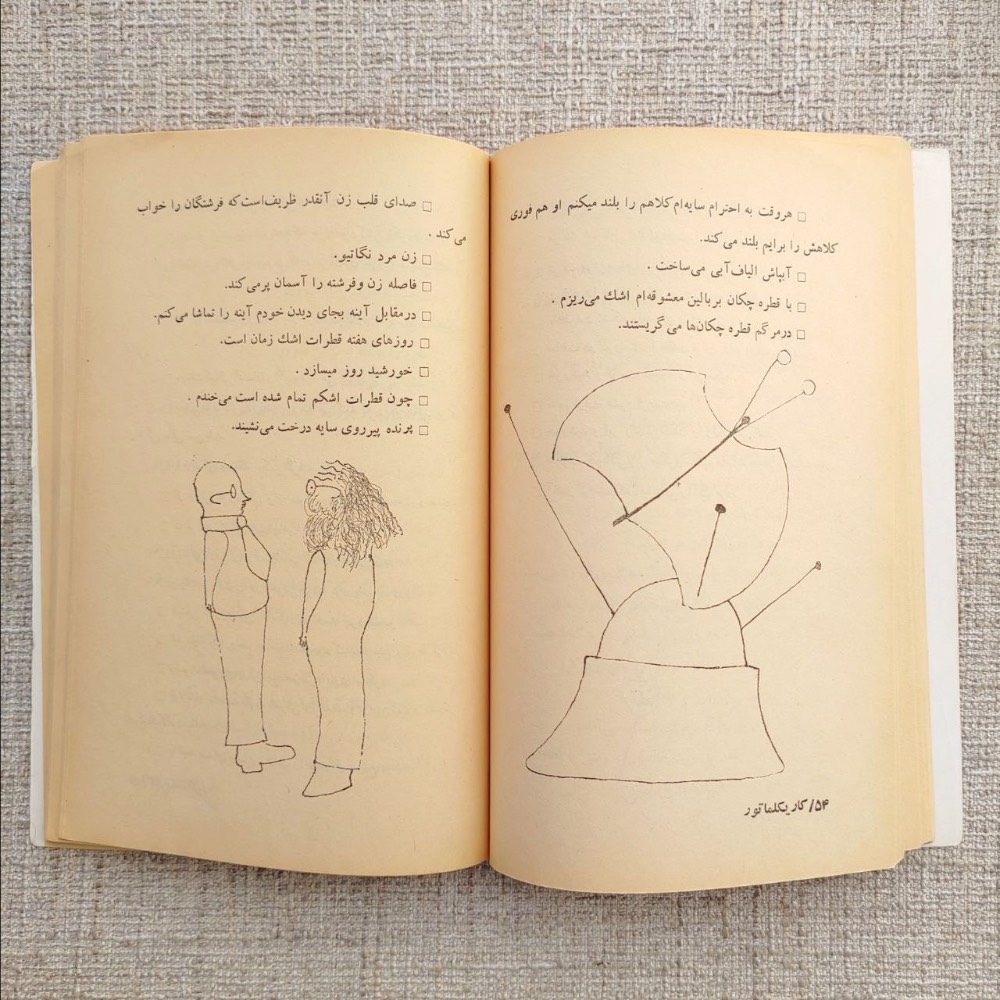 □ هروقت به احترام سایه‌ام کلاهم را بلند میکنم او هم فوری
کلاهش را برایم بلند می‌کند.
□ آبپاش الیاف‌آبی می‌ساخت .
□ با قطره چکان بربالین معشوقه‌ام اشك می‌ریزم .
□ درمرگم قطره چکان‌ها می گریستند.
۵۴/کاریکلماتور
□ صدای قلب زن آنقدر ظریف‌است‌که فرشتگان را خواب
می‌کند .
□ زن مرد نگاتیو.
□ فاصله زن وفرشته را آسمان پرمی‌کند.
□ درمقابل آینه بجای دیدن خودم آینه را تماشا می‌کنم.
□ روزهای هفته قطرات اشك زمان است.
□ خورشید روز میسازد .
□ چون قطرات اشکم تمام شده است می‌خندم .
□ پرنده پیرروی سایه درخت می‌نشیند.